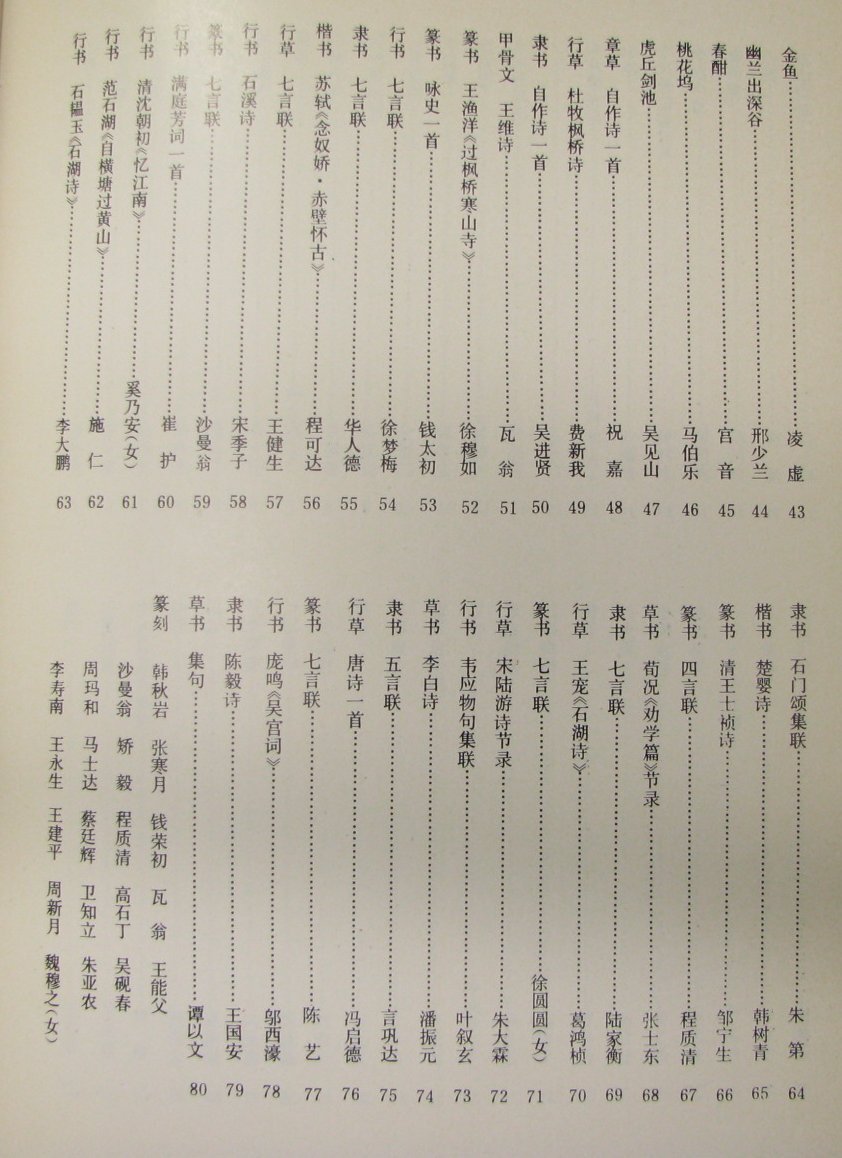 金鱼……凌 虚 43
幽兰出深谷……邢少兰 44
春酣……宫 音 45
桃花坞……马伯乐 46
虎丘剑池……吴见山 47
章草 自作诗一首……祝 嘉 48
行草 杜牧枫桥诗……费新我 49
隶书 自作诗一首……吴进贤 50
甲骨文 王维诗……瓦 翁 51
篆书 王渔洋《过枫桥寒山寺》……徐穆如 52
篆书 咏史一首……钱太初 53
行书 七言联……徐梦梅 54
隶书 七言联……华人德 55
楷书 苏轼《念奴娇·赤壁怀古》……程可达 56
行草 七言联……王健生 57
行书 石溪诗……宋季子 58
篆书 七言联……沙曼翁 59
行书 满庭芳词一首……崔 护 60
行书 清沈朝初《忆江南》……奚乃安(女) 61
行书 范石湖《自横塘过黄山》……施 仁 62
行书 石韫玉《石湖诗》……李大鹏 63
隶书 石门颂集联……朱 第 64
楷书 楚婴诗……韩树青 65
篆书 清王士祯诗……邹宁生 66
篆书 四言联……程质清 67
草书 荀况《劝学篇》节录……张士东 68
隶书 七言联……陆家衡 69
行草 王宠《石湖诗》……葛鸿桢 70
篆书 七言联……徐圆圆(女) 71
行草 宋陆游诗节录……朱大霖 72
行书 韦应物句集联……叶叙玄 73
草书 李白诗……潘振元 74
隶书 五言联……言巩达 75
行草 唐诗一首……冯启德 76
篆书 七言联……陈 艺 77
行书 庞鸣《吴宫词》……邬西濠 78
隶书 陈毅诗……王国安 79
草书 集句……谭以文 80
篆刻 韩秋岩 张寒月 钱荣初 瓦 翁 王能父
沙曼翁 矫 毅 程质清 高石丁 吴砚春
周玛和 马士达 蔡廷辉 卫知立 朱亚农
李寿南 王永生 王建平 周新月 魏穆之(女)